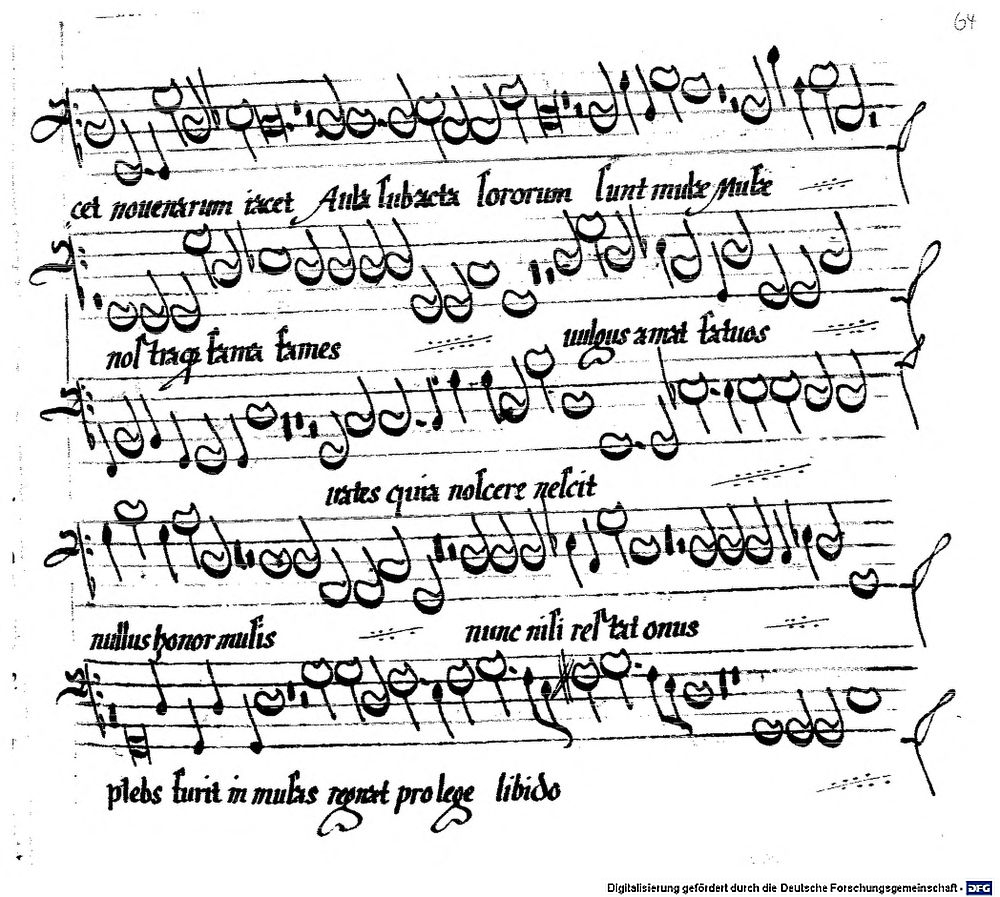 64
cet nouenarum iacet Aula subacta sororum sunt mutæ Musæ
nostraq fama fames uulgus amat fatuos
uates quia noscere nescit
nullus honor musis nunc nisi restat onus
plebs furit in musas regnat pro lege libido
Digitalisierung gefördert durch die Deutsche Forschungsgemeinschaft - DFG